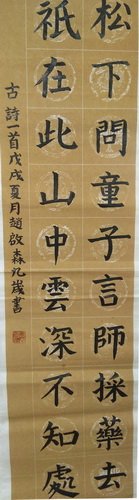 松下問童子言師採藥去
祇在此山中雲深不知處
古詩一首戊戌夏月趙啟森九歲書